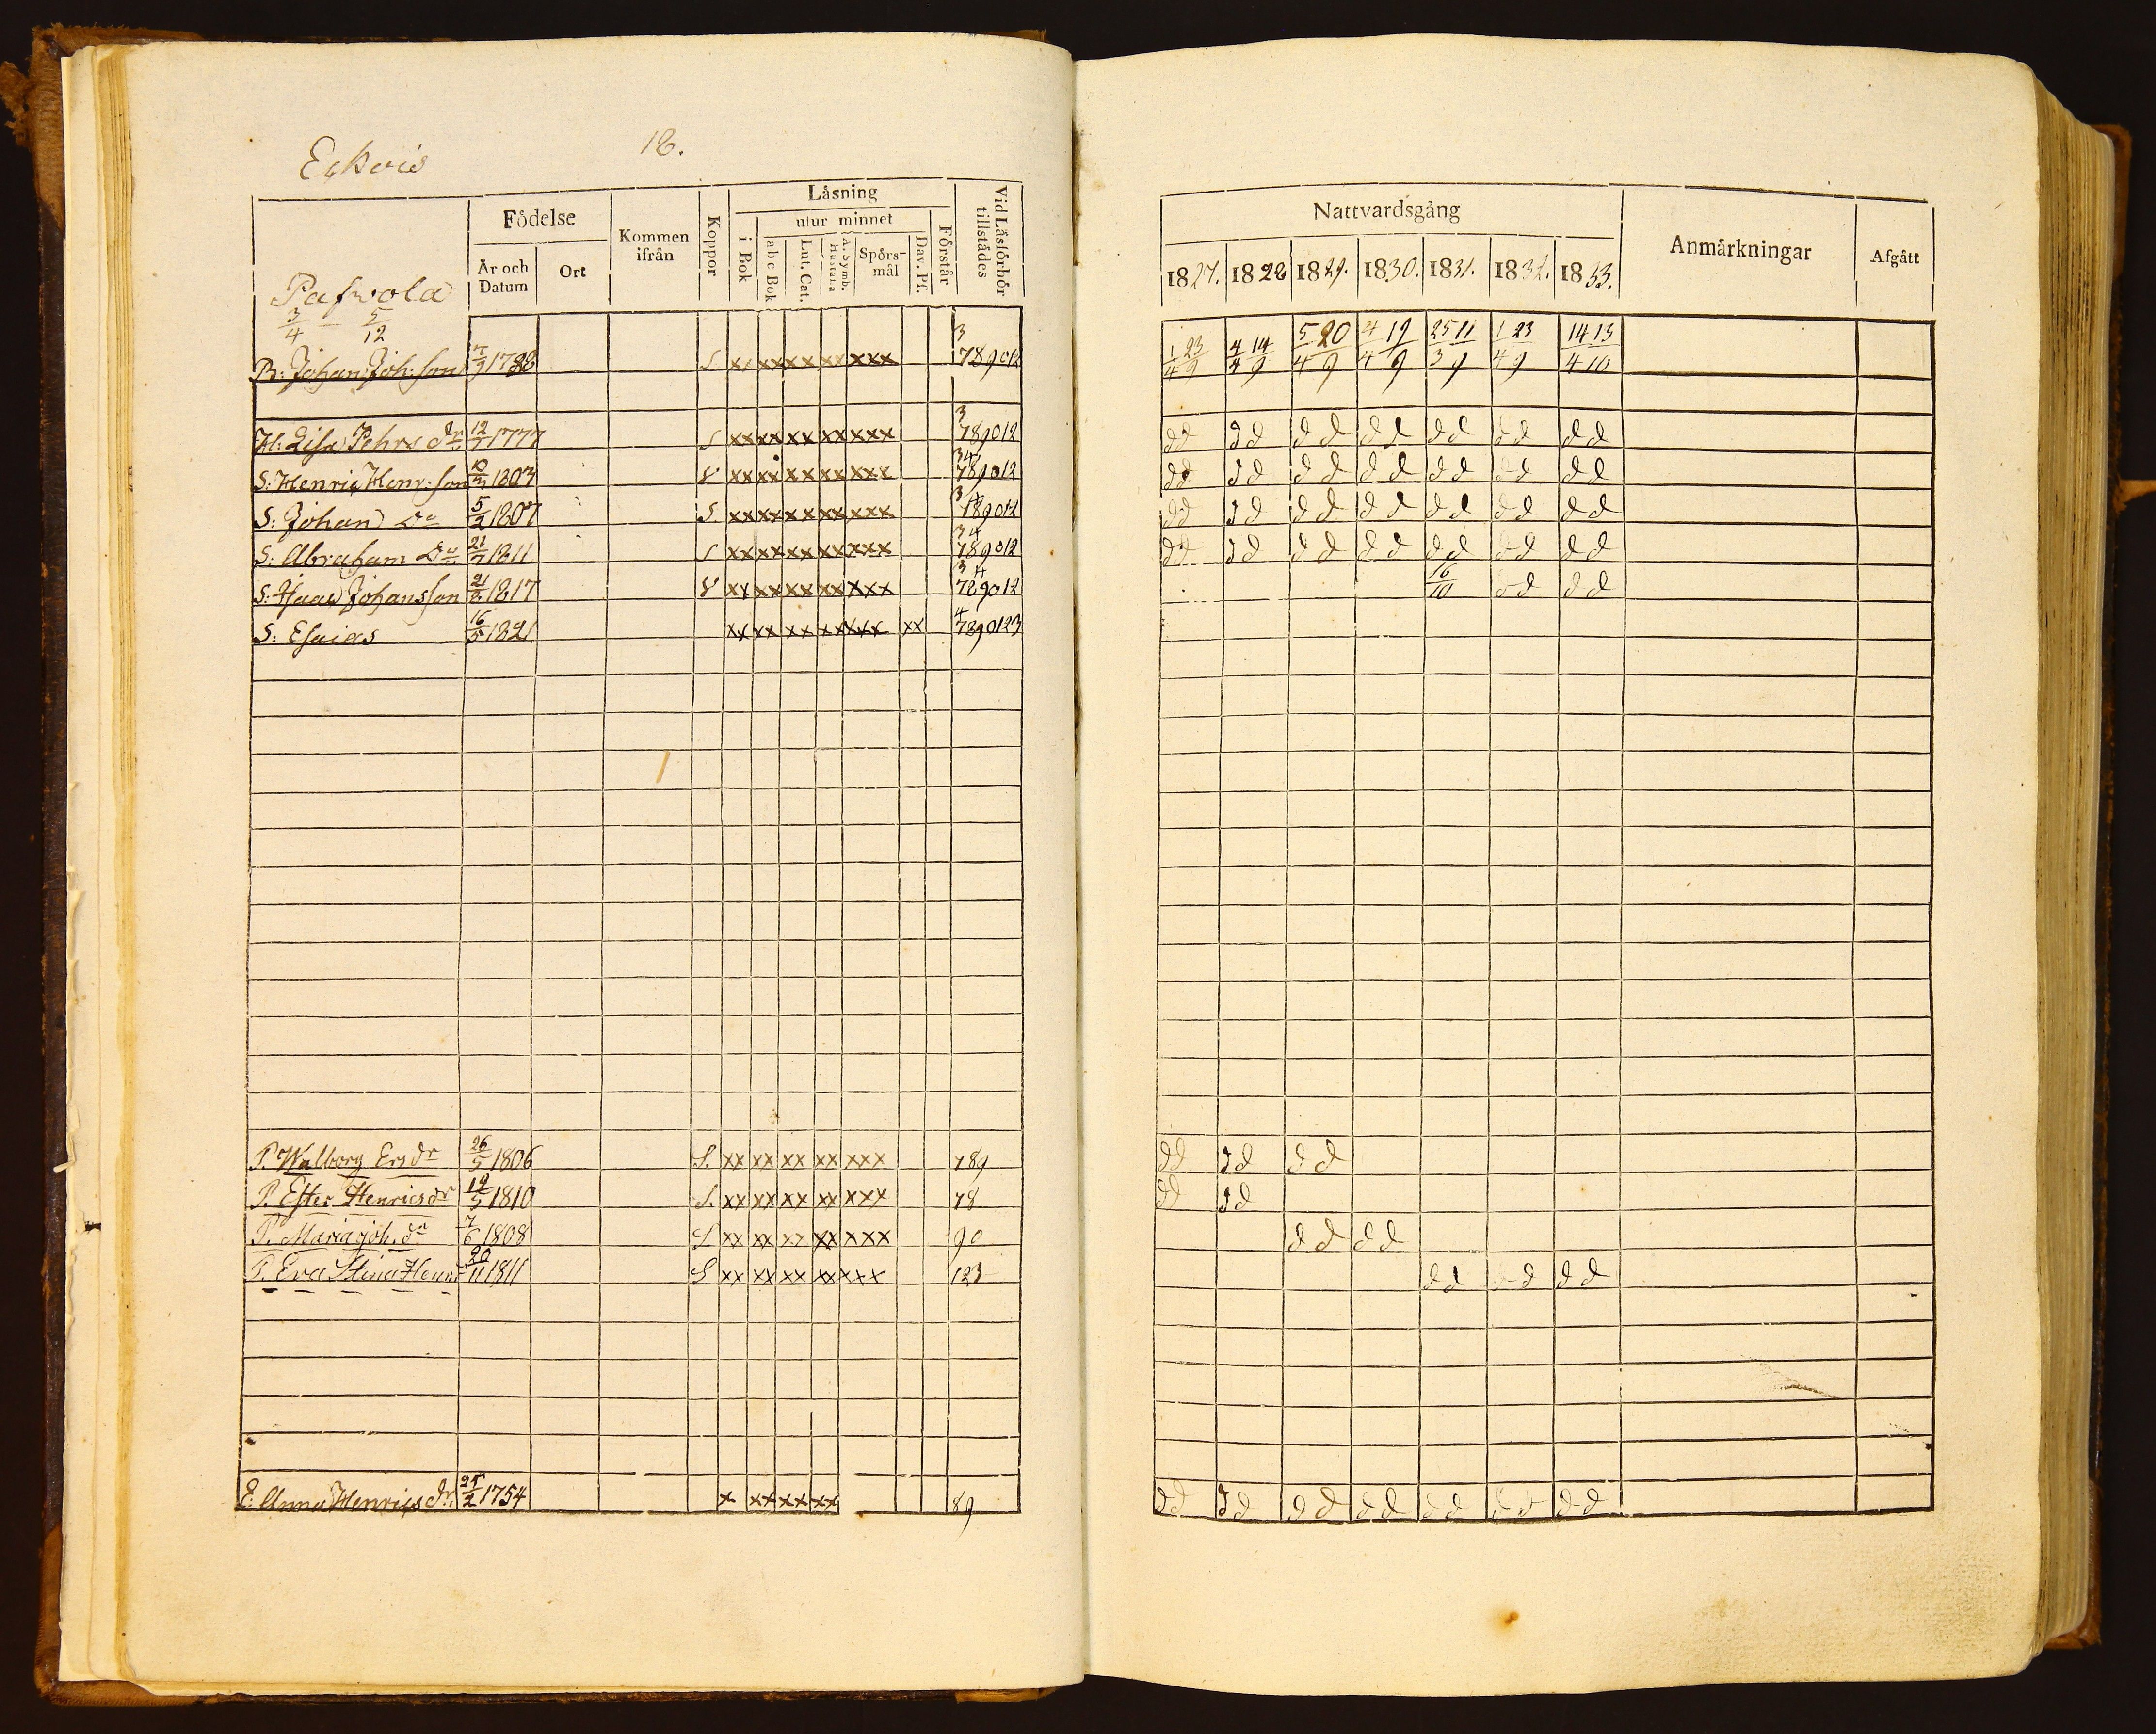 Eckois
18.
Pafvola
3/4 — 5/12
Födelse
År och Datum
Ort
Kommen ifrån
Koppor
Läsning
i Bok
utur minnet
abc Bok
Lut. Cat.
A. Symb. Hustafla
Spörs-mål
Dav. Ps.
Förstår
Vid Läsförhör tillstådes
B: Johan Joh:son 1788 S. xx xx xx xx xxx 3 789012
H: Lisa Pehrs dr 12/7 1777 S xx xx xx xx xxx 3 789012
S: Henric Henr:son 1803 V xx xx xx xx xxx 34 789012
S: Johan Do 5/2 1807 S. xx xx xx xx xxx 34 789012
S: Abraham Do 21/7 1811 S xx xx xx xx xxx 34 789012
S: Isaac Johansson 21/8 1817 V xx xx xx xx xxx 34 789012
S: Esaias 16/5 1821 xx xx xx xx xxx xx 4 7890123
P. Walborg Ersdr 26/5 1806 S. xx xx xx xx xxx 789
P. Ester Henricsdr 19/5 1810 S. xx xx xx xx xxx 78
P. Maria Joh. dr 7/6 1808 S. xx xx xx xx xxx 90
P. Eva Stina Henr 20/11 1811 S xx xx xx xx xxx 123
E. Anna Henrics dr. 25/2 1754 x xx xx xx 89
Nattvardsgång
Anmärkningar
Afgått
1827. 1828 1829. 1830. 1831. 1832. 1833.
1/4 23/9 4/4 14/9 5/4 20/9 4/4 19/9 25/3 11/9 1/4 23/9 14/4 13/10
dd dd dd dd dd dd dd
dd dd dd dd dd dd dd
dd dd dd dd dd dd dd
dd dd dd dd dd dd dd
16/10 dd dd
dd dd dd
dd dd
dd dd
dd dd dd
dd dd dd dd dd dd dd